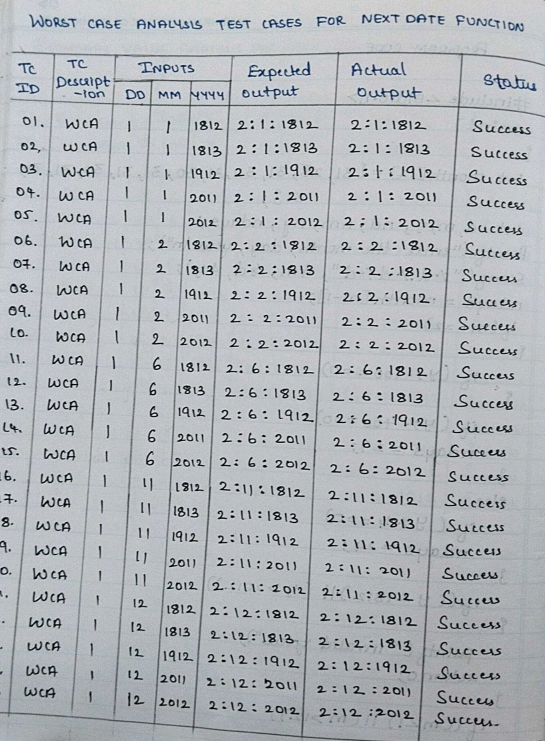 WORST CASE ANALYSIS TEST CASES FOR NEXT DATE FUNCTION
TC ID TC Descipt-ion INPUTS DD MM YYYY Expected output Actual output Status
01. WCA 1 1 1812 2:1:1812 2:1:1812 Success
02, WCA 1 1 1813 2:1:1813 2:1:1813 Success
03. WCA 1 1 1912 2:1:1912 2:1:1912 Success
04. WCA 1 1 2011 2:1:2011 2:1:2011 Success
05. WCA 1 1 2012 2:1:2012 2:1:2012 Success
06. WCA 1 2 1812 2:2:1812 2:2:1812 Success
07. WCA 1 2 1813 2:2:1813 2:2:1813 Success
08. WCA 1 2 1912 2:2:1912 2:2:1912 Success
09. WCA 1 2 2011 2:2:2011 2:2:2011 Success
10. WCA 1 2 2012 2:2:2012 2:2:2012 Success
11. WCA 1 6 1812 2:6:1812 2:6:1812 Success
12. WCA 1 6 1813 2:6:1813 2:6:1813 Success
13. WCA 1 6 1912 2:6:1912 2:6:1912 Success
14. WCA 1 6 2011 2:6:2011 2:6:2011 Success
15. WCA 1 6 2012 2:6:2012 2:6:2012 Success
6. WCA 1 11 1812 2:11:1812 2:11:1812 Success
7. WCA 1 11 1813 2:11:1813 2:11:1813 Success
8. WCA 1 11 1912 2:11:1912 2:11:1912 Success
9. WCA 1 11 2011 2:11:2011 2:11:2011 Success
0. WCA 1 11 2012 2:11:2012 2:11:2012 Success
WCA 1 12 1812 2:12:1812 2:12:1812 Success
WCA 1 12 1813 2:12:1813 2:12:1813 Success
WCA 1 12 1912 2:12:1912 2:12:1912 Success
WCA 1 12 2011 2:12:2011 2:12:2011 Success
WCA 1 12 2012 2:12:2012 2:12:2012 Success